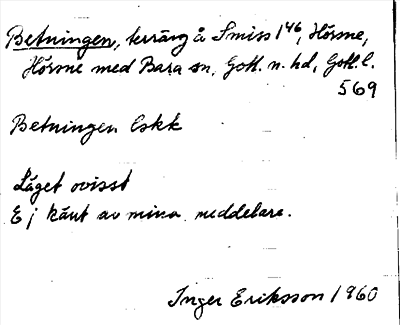 Betningen, terräng å Smiss 1⁴⁶, Hörsne,
Hörsne med Bara sn, Gotl. n. hd, Gotl. l.
569
Betningen Eskk
Läget ovisst
Ej känt av mina meddelare.
Inger Eriksson 1960